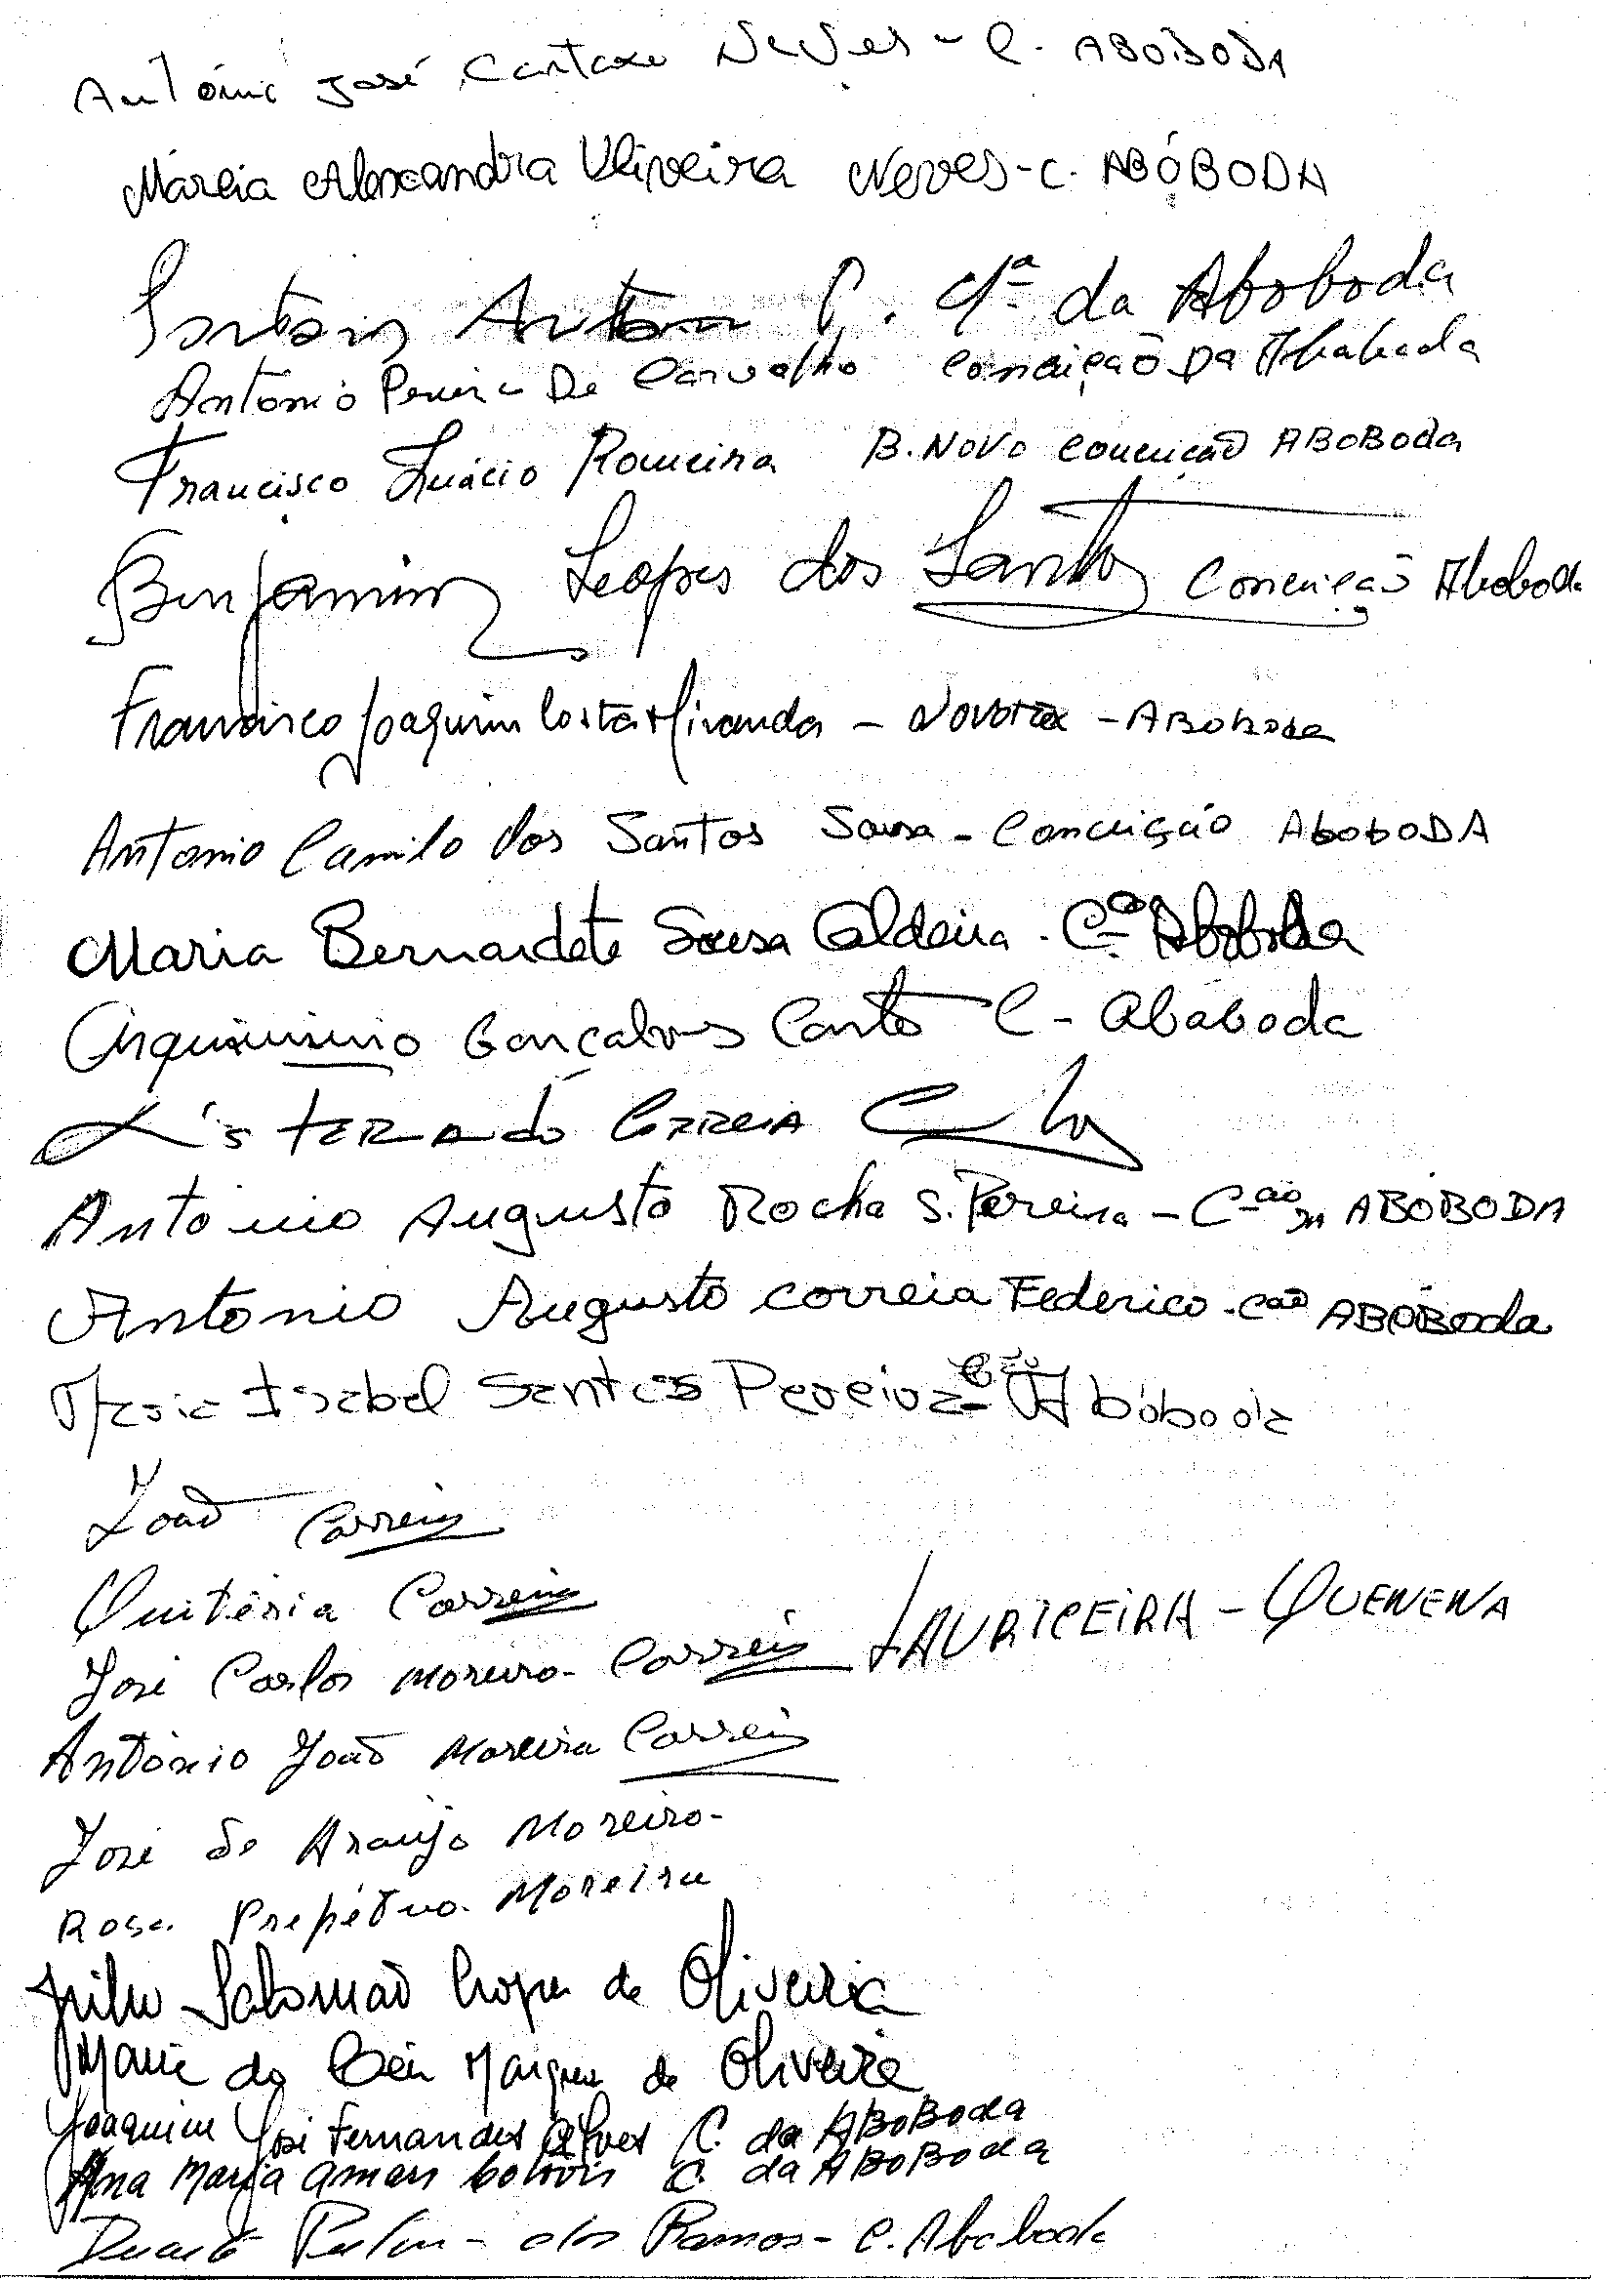 António José Cartaxo Neves - C. ABOBODA
Márcia Alexandra Oliveira Neves - C. ABÓBODA
António C. da Aboboda
António Pereira De Carvalho Conceição Da Abobada
Francisco Inácio Romeira B. Novo Conceição ABOBODA
Benjamim Lopes dos Santos Conceição Aboboda
Francisco Joaquim Costa Miranda - - ABOBODA
Antonio Camilo dos Santos Sousa - Conceição ABOBODA
Maria Bernardete Sousa Caldeira - Cão Aboboda
Gonçalves C - Abóboda
CORREIA
António Augusto Rocha S. Pereira - Cção ABÓBODA
Antonio Augusto Correia Federico - Cção ABÓBODA
Maria Isabel Santos Pereira Abóboda
João Correia
Quitéria Correia
José Carlos Moreira Correia LAURICEIRA - QUENENA
António João Moreira Correia
José de Araujo Moreira
Rosa Prepétua Moreira
Salomão Lopes de Oliveira
Maria do Céu Marques de Oliveira
Joaquim José Fernandes Alves C. da ABOBODA
Ana Maria C. da ABOBODA
Duarte dos Ramos - C. Aboboda